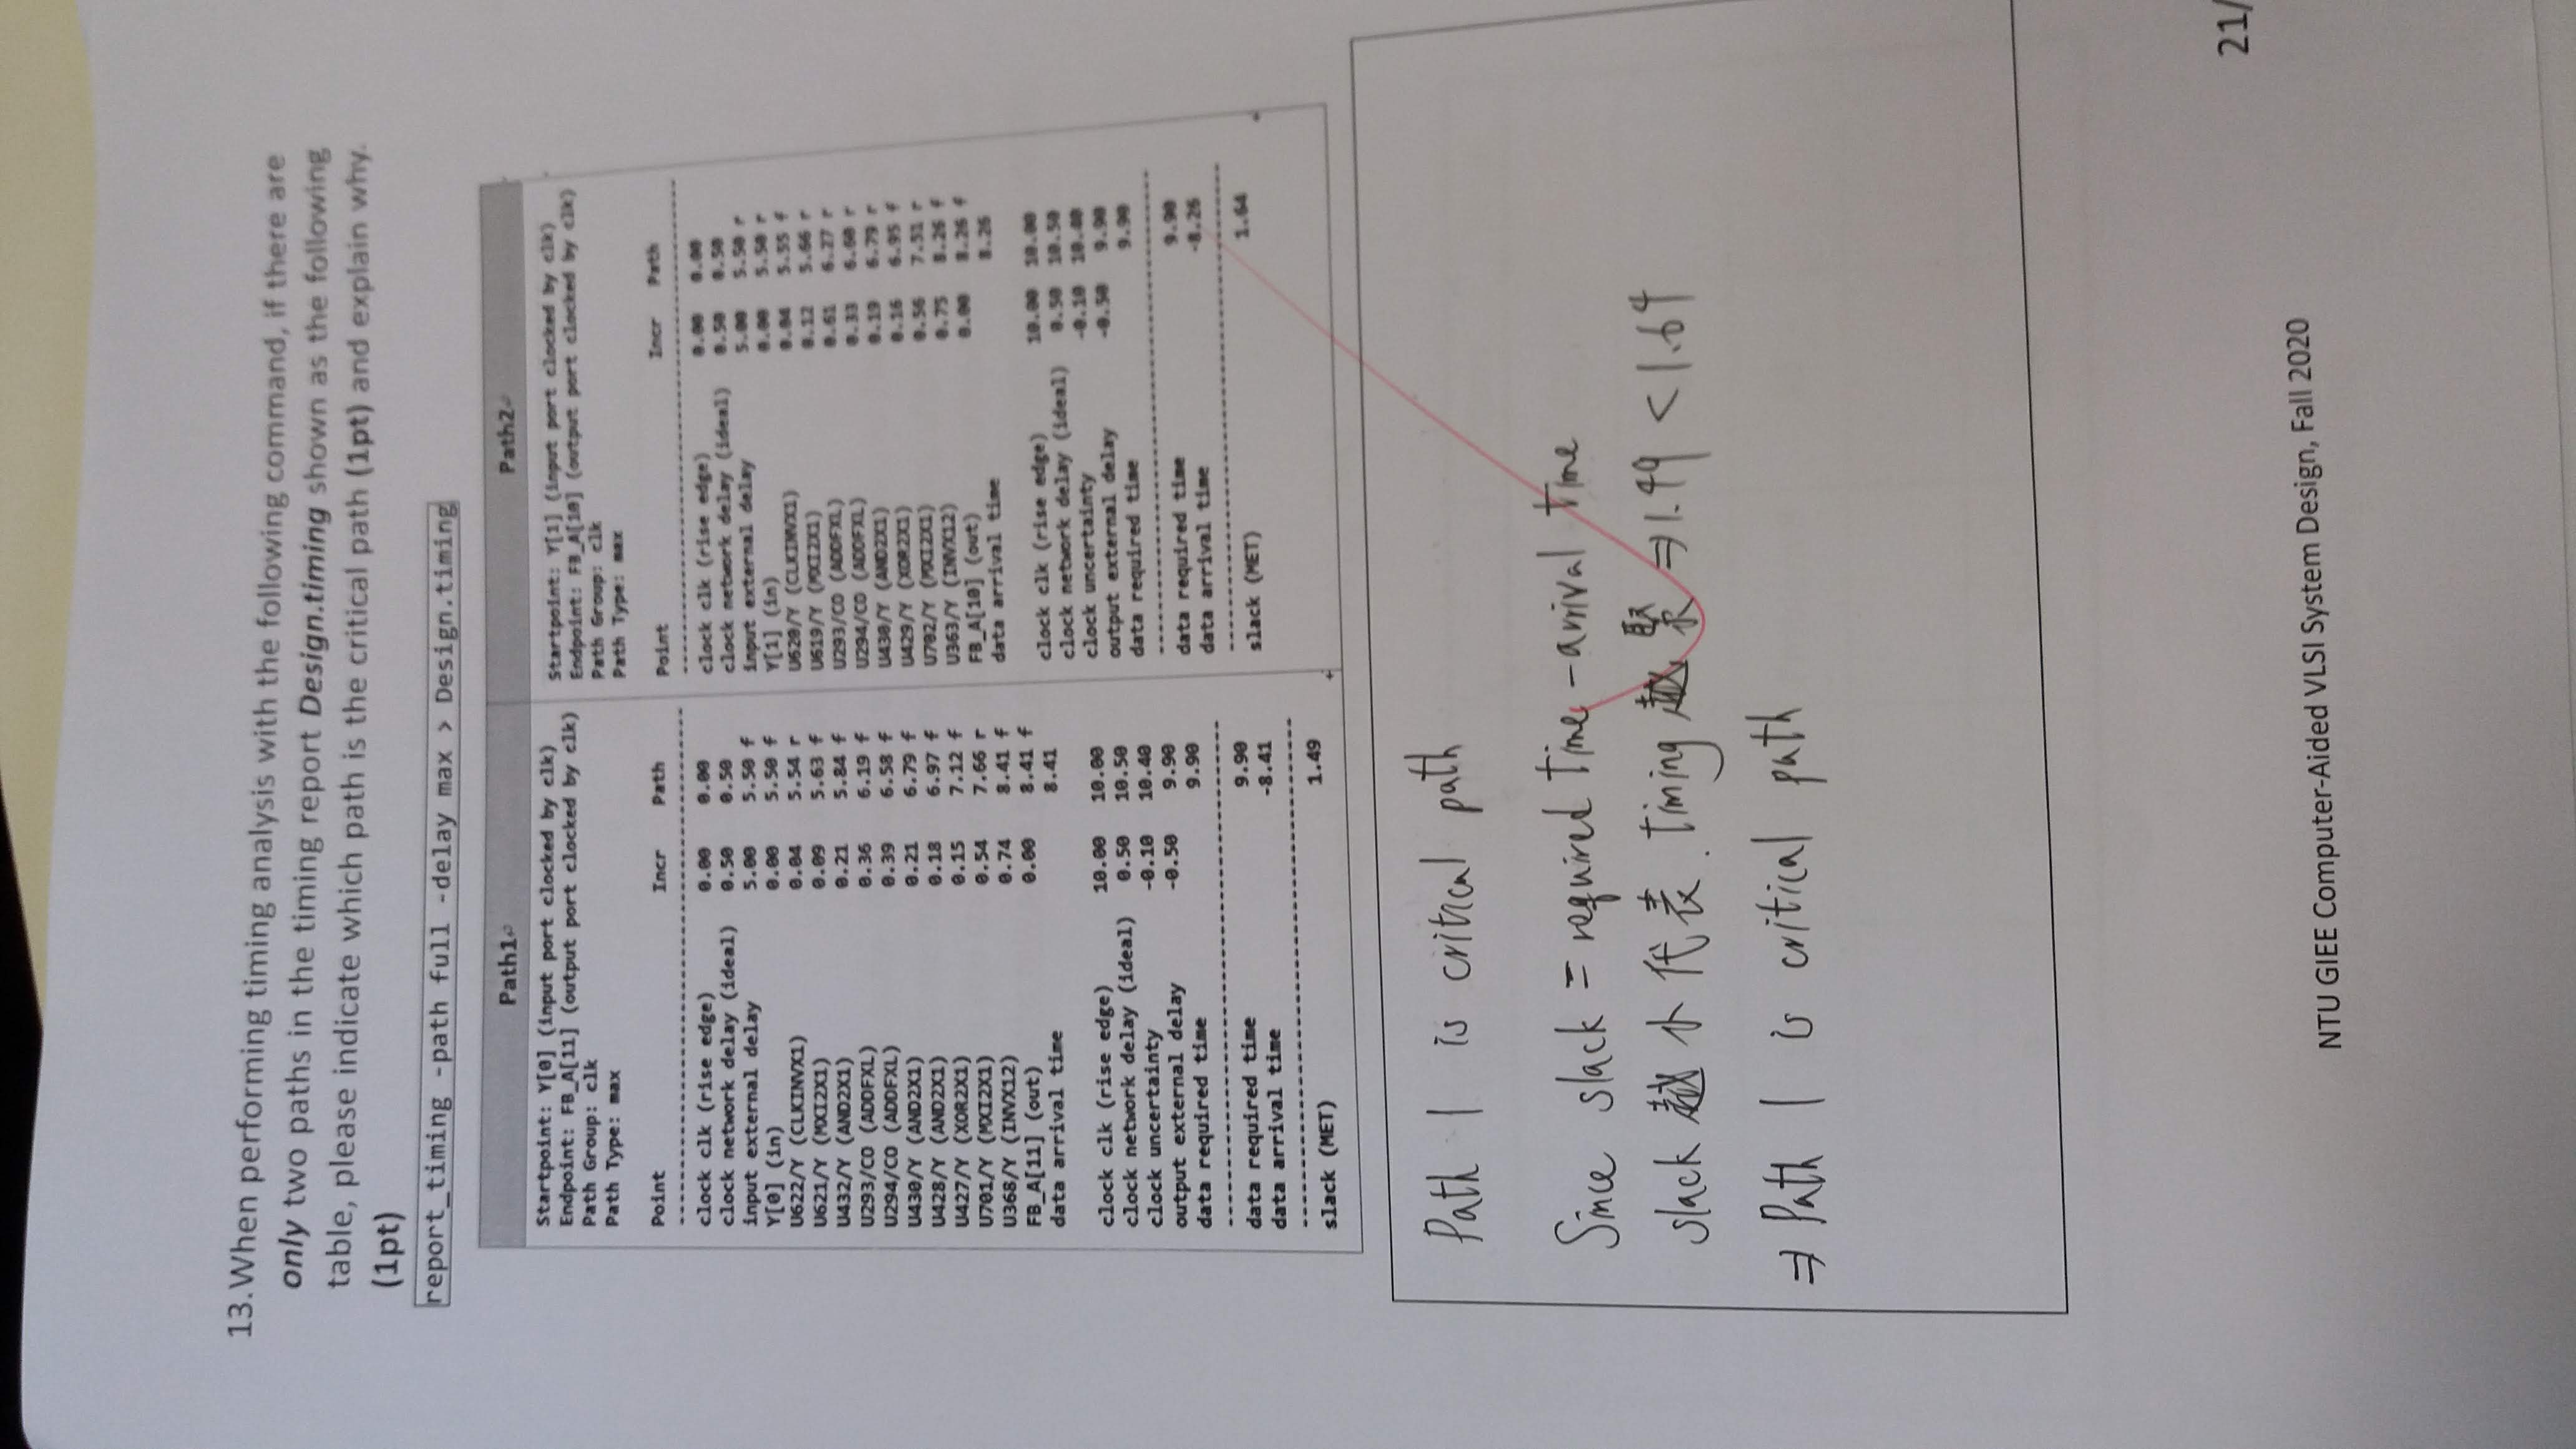 13.When performing timing analysis with the following command, if there are
only two paths in the timing report Design.timing shown as the following
table, please indicate which path is the critical path (1pt) and explain why.
(1pt)
report_timing -path full -delay max > Design.timing
Path1
Startpoint: Y[0] (input port clocked by clk)
Endpoint: FB_A[11] (output port clocked by clk)
Path Group: clk
Path Type: max
Point Incr Path
clock clk (rise edge) 0.00 0.00
clock network delay (ideal) 0.50 0.50
input external delay 5.00 5.50 f
Y[0] (in) 0.00 5.50 f
U622/Y (CLKINVX1) 0.04 5.54 r
U621/Y (MXI2X1) 0.09 5.63 f
U432/Y (AND2X1) 0.21 5.84 f
U293/CO (ADDFXL) 0.36 6.19 f
U294/CO (ADDFXL) 0.39 6.58 f
U430/Y (AND2X1) 0.21 6.79 f
U428/Y (AND2X1) 0.18 6.97 f
U427/Y (XOR2X1) 0.15 7.12 f
U701/Y (MXI2X1) 0.54 7.66 r
U368/Y (INVX12) 0.74 8.41 f
FB_A[11] (out) 0.00 8.41 f
data arrival time 8.41
clock clk (rise edge) 10.00 10.00
clock network delay (ideal) 0.50 10.50
clock uncertainty -0.10 10.40
output external delay -0.50 9.90
data required time 9.90
data required time 9.90
data arrival time -8.41
slack (MET) 1.49
Path2
Startpoint: Y[1] (input port clocked by clk)
Endpoint: FB_A[10] (output port clocked by clk)
Path Group: clk
Path Type: max
Point Incr Path
clock clk (rise edge) 0.00 0.00
clock network delay (ideal) 0.50 0.50
input external delay 5.00 5.50 r
Y[1] (in) 0.00 5.50 r
U620/Y (CLKINVX1) 0.04 5.55 f
U619/Y (MXI2X1) 0.12 5.66 r
U293/CO (ADDFXL) 0.61 6.27 r
U294/CO (ADDFXL) 0.33 6.60 r
U430/Y (AND2X1) 0.19 6.79 r
U429/Y (XOR2X1) 0.16 6.95 f
U702/Y (MXI2X1) 0.56 7.51 r
U363/Y (INVX12) 0.75 8.26 f
FB_A[10] (out) 0.00 8.26 f
data arrival time 8.26
clock clk (rise edge) 10.00 10.00
clock network delay (ideal) 0.50 10.50
clock uncertainty -0.10 10.40
output external delay -0.50 9.90
data required time 9.90
data required time 9.90
data arrival time -8.26
slack (MET) 1.64
Path 1 is critical path
Since slack = required time - arrival time
slack 越小代表 timing 越緊 ⇒ 1.49 < 1.64
⇒ Path 1 is critical path
21/
NTU GIEE Computer-Aided VLSI System Design, Fall 2020